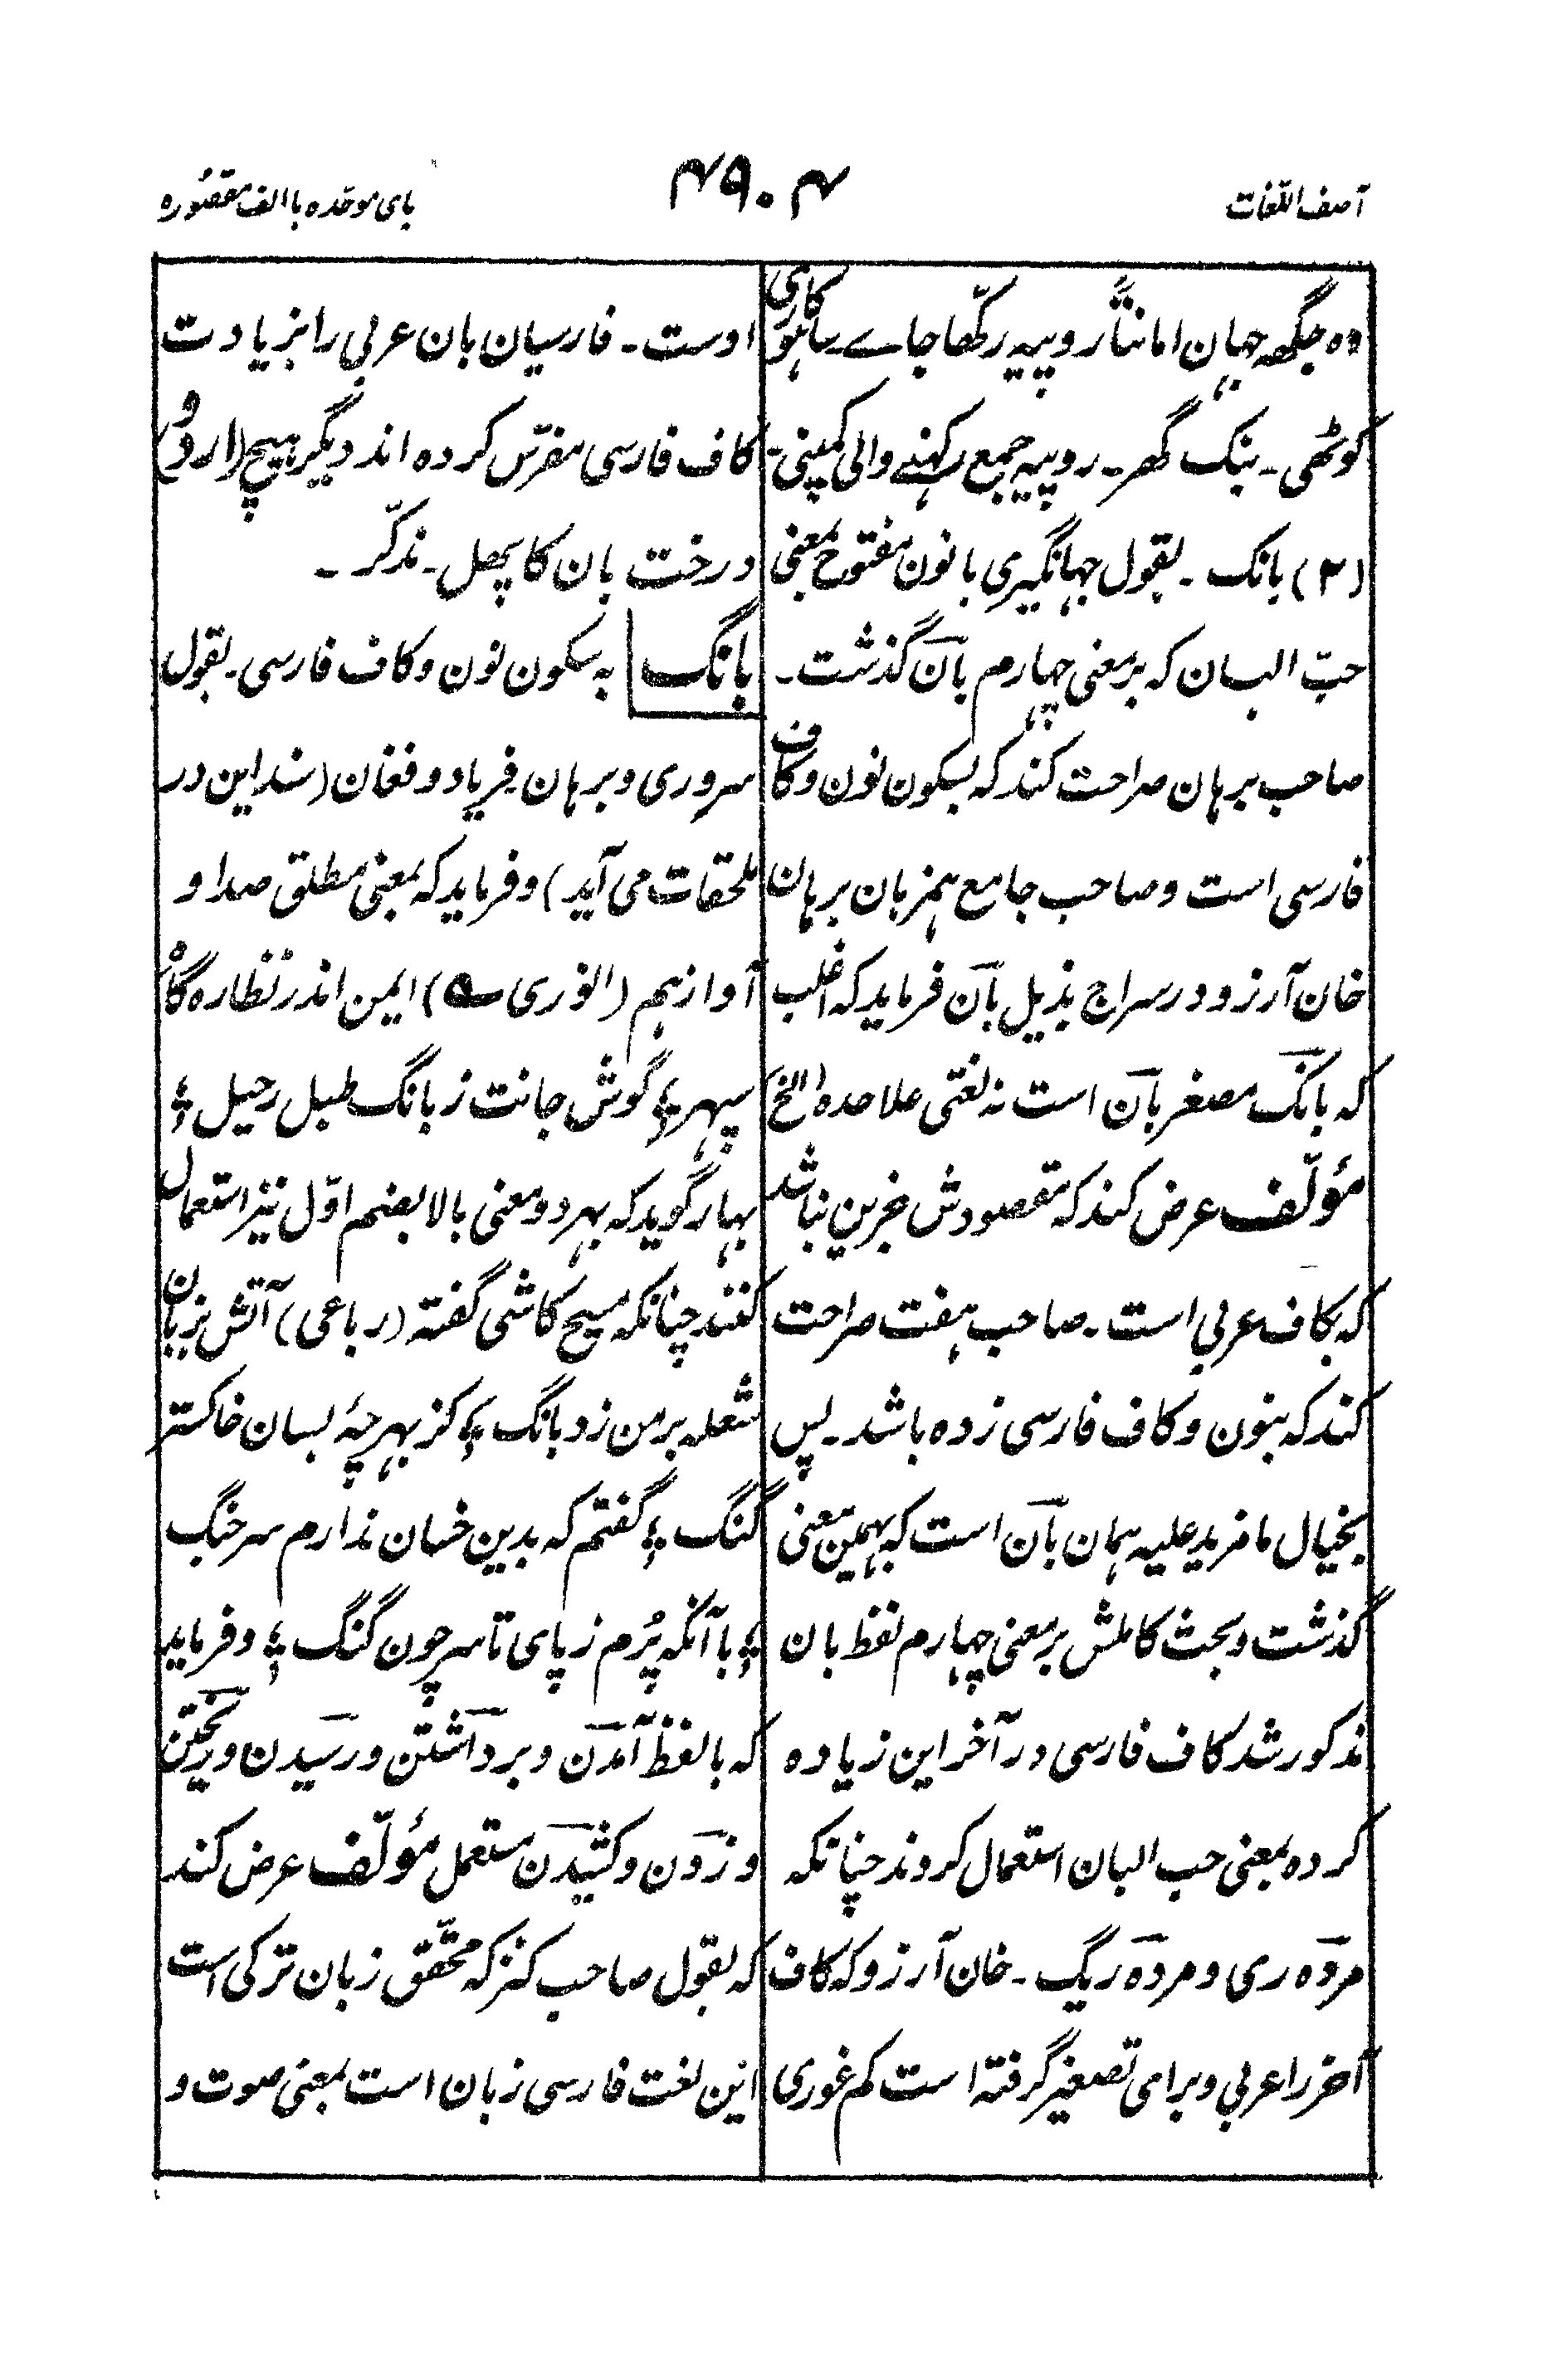 آصف اللّغات
۴۹۰۴
بای موحّده با الف مقصوره
وه جگہہ جہان امانتًا روپیہ رکھّا جاے ساہوکاری
کوٹھی ۔ بنک گھر ۔ روپیہ جمع رکہنے والی کمپنی ۔
(۲) بانک ۔ بقول جہانگیری با نون مفتوح بمعنی
حبّ البان که بر معنی چہارم بان گذشت ۔
صاحب برہان صراحت کند که بسکون نون و کاف
فارسی است و صاحب جامع ہمزبان برہان
خان آرزو در سراج بذیل بان فرماید که اغلب
که بانک مصغر بان است نه لغتی علاحده الخ
مؤلّف عرض کند که مقصودش جزین نباشد
که بکاف عربی است ۔ صاحب ہفت صراحت
کند که بنون و کاف فارسی زده باشد ۔ پس
بخیال ما مزید علیہ ہمان بان است که بہمین معنی
گذشت و بحث کاملش بر معنی چہارم لفظ بان
مذکور شد کاف فارسی در آخر این زیاده
کرده بمعنی حب البان استعمال کردند چنانکه
مرده ری و مرده ریگ ۔ خان آرزو که کاف
آخر را عربی و برای تصغیر گرفته است کم غوری
اوست ۔ فارسیان بان عربی را بزیادت
کاف فارسی مفرّس کرده اند دیگر ہیچ (اردو)
درخت بان کا پھل ۔ مذکّر ۔
بانگ به سکون نون و کاف فارسی ۔ بقول
سروری و برہان فریاد و فغان (سند این در
ملحقات می آید) و فرماید که بمعنی مطلق صدا و
آواز ہم (انوری ؎) ایمن اندر نظاره گاه
سپہر ؛ گوش جانت ز بانگ طبل رحیل ؛
بہار گوید که بہر دو معنی بالا بضم اوّل نیز استعمال
کنند چنانکه مسیح کاشی گفته (رباعی) آتش بزبان
شعله بر من زد بانگ ؛ کز بہر چۂ بسان خاکستر
گنگ ؛ گفتم که بدین خسان ندارم سر جنگ
؛ با آنکه پُرم ز پای تا سر چون گنگ ؛ و فرماید
که با لفظ آمدن و برداشتن و رسیدن و ریختن
و زدن و کشیدن مستعمل مؤلّف عرض کند
که بقول صاحب کنز که محقّق زبان ترکی است
این لغت فارسی زبان است بمعنی صوت و